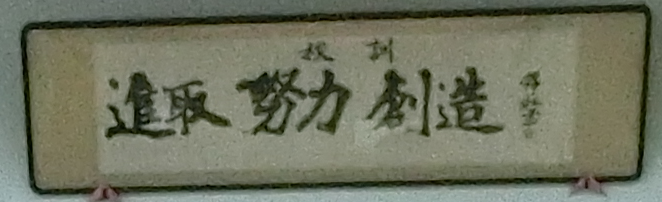 校訓
進取 努力 創造